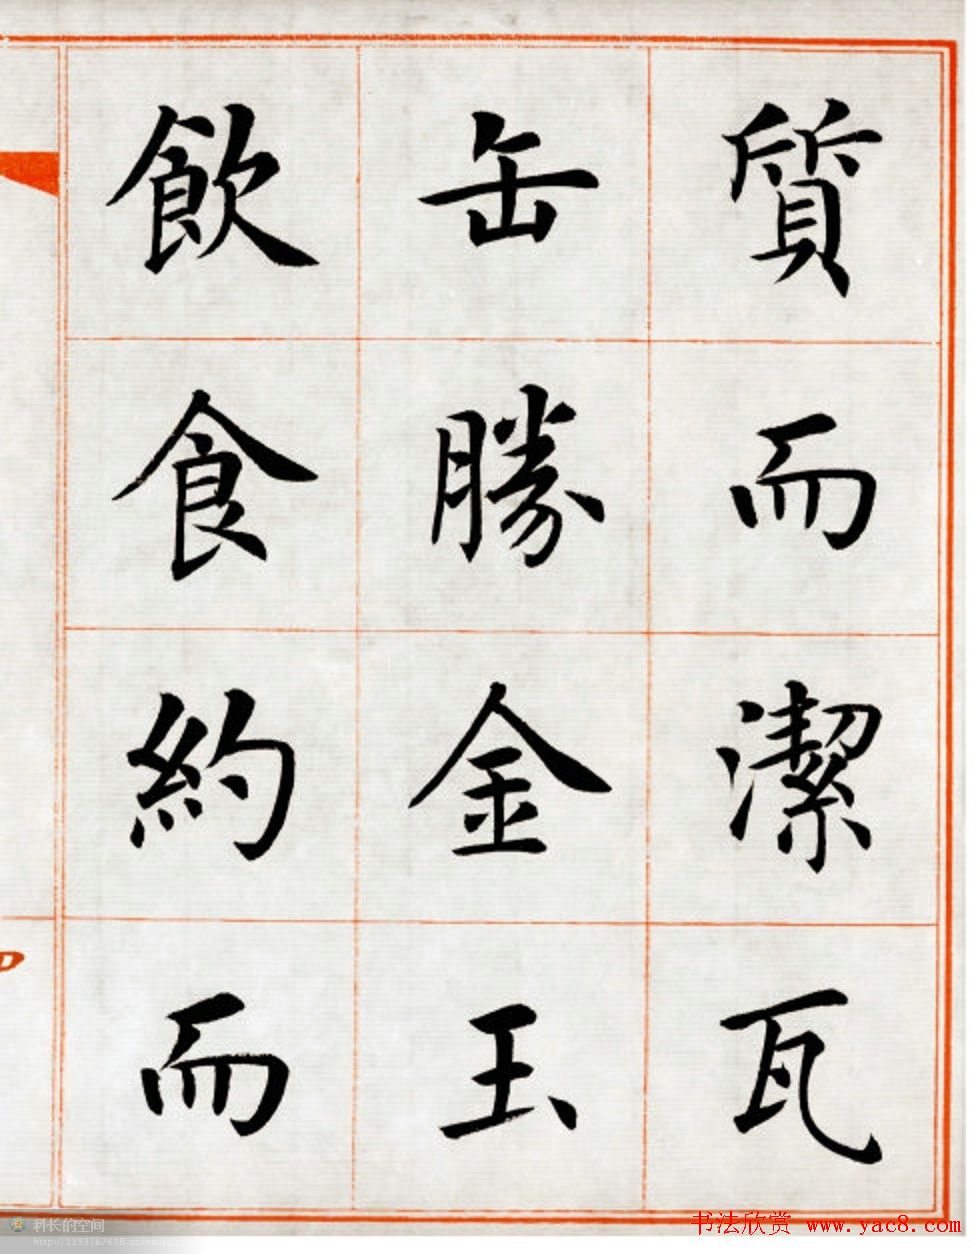 質而潔瓦
缶勝金玉
飲食約而
科长的空间
书法欣赏 www.yac8.com